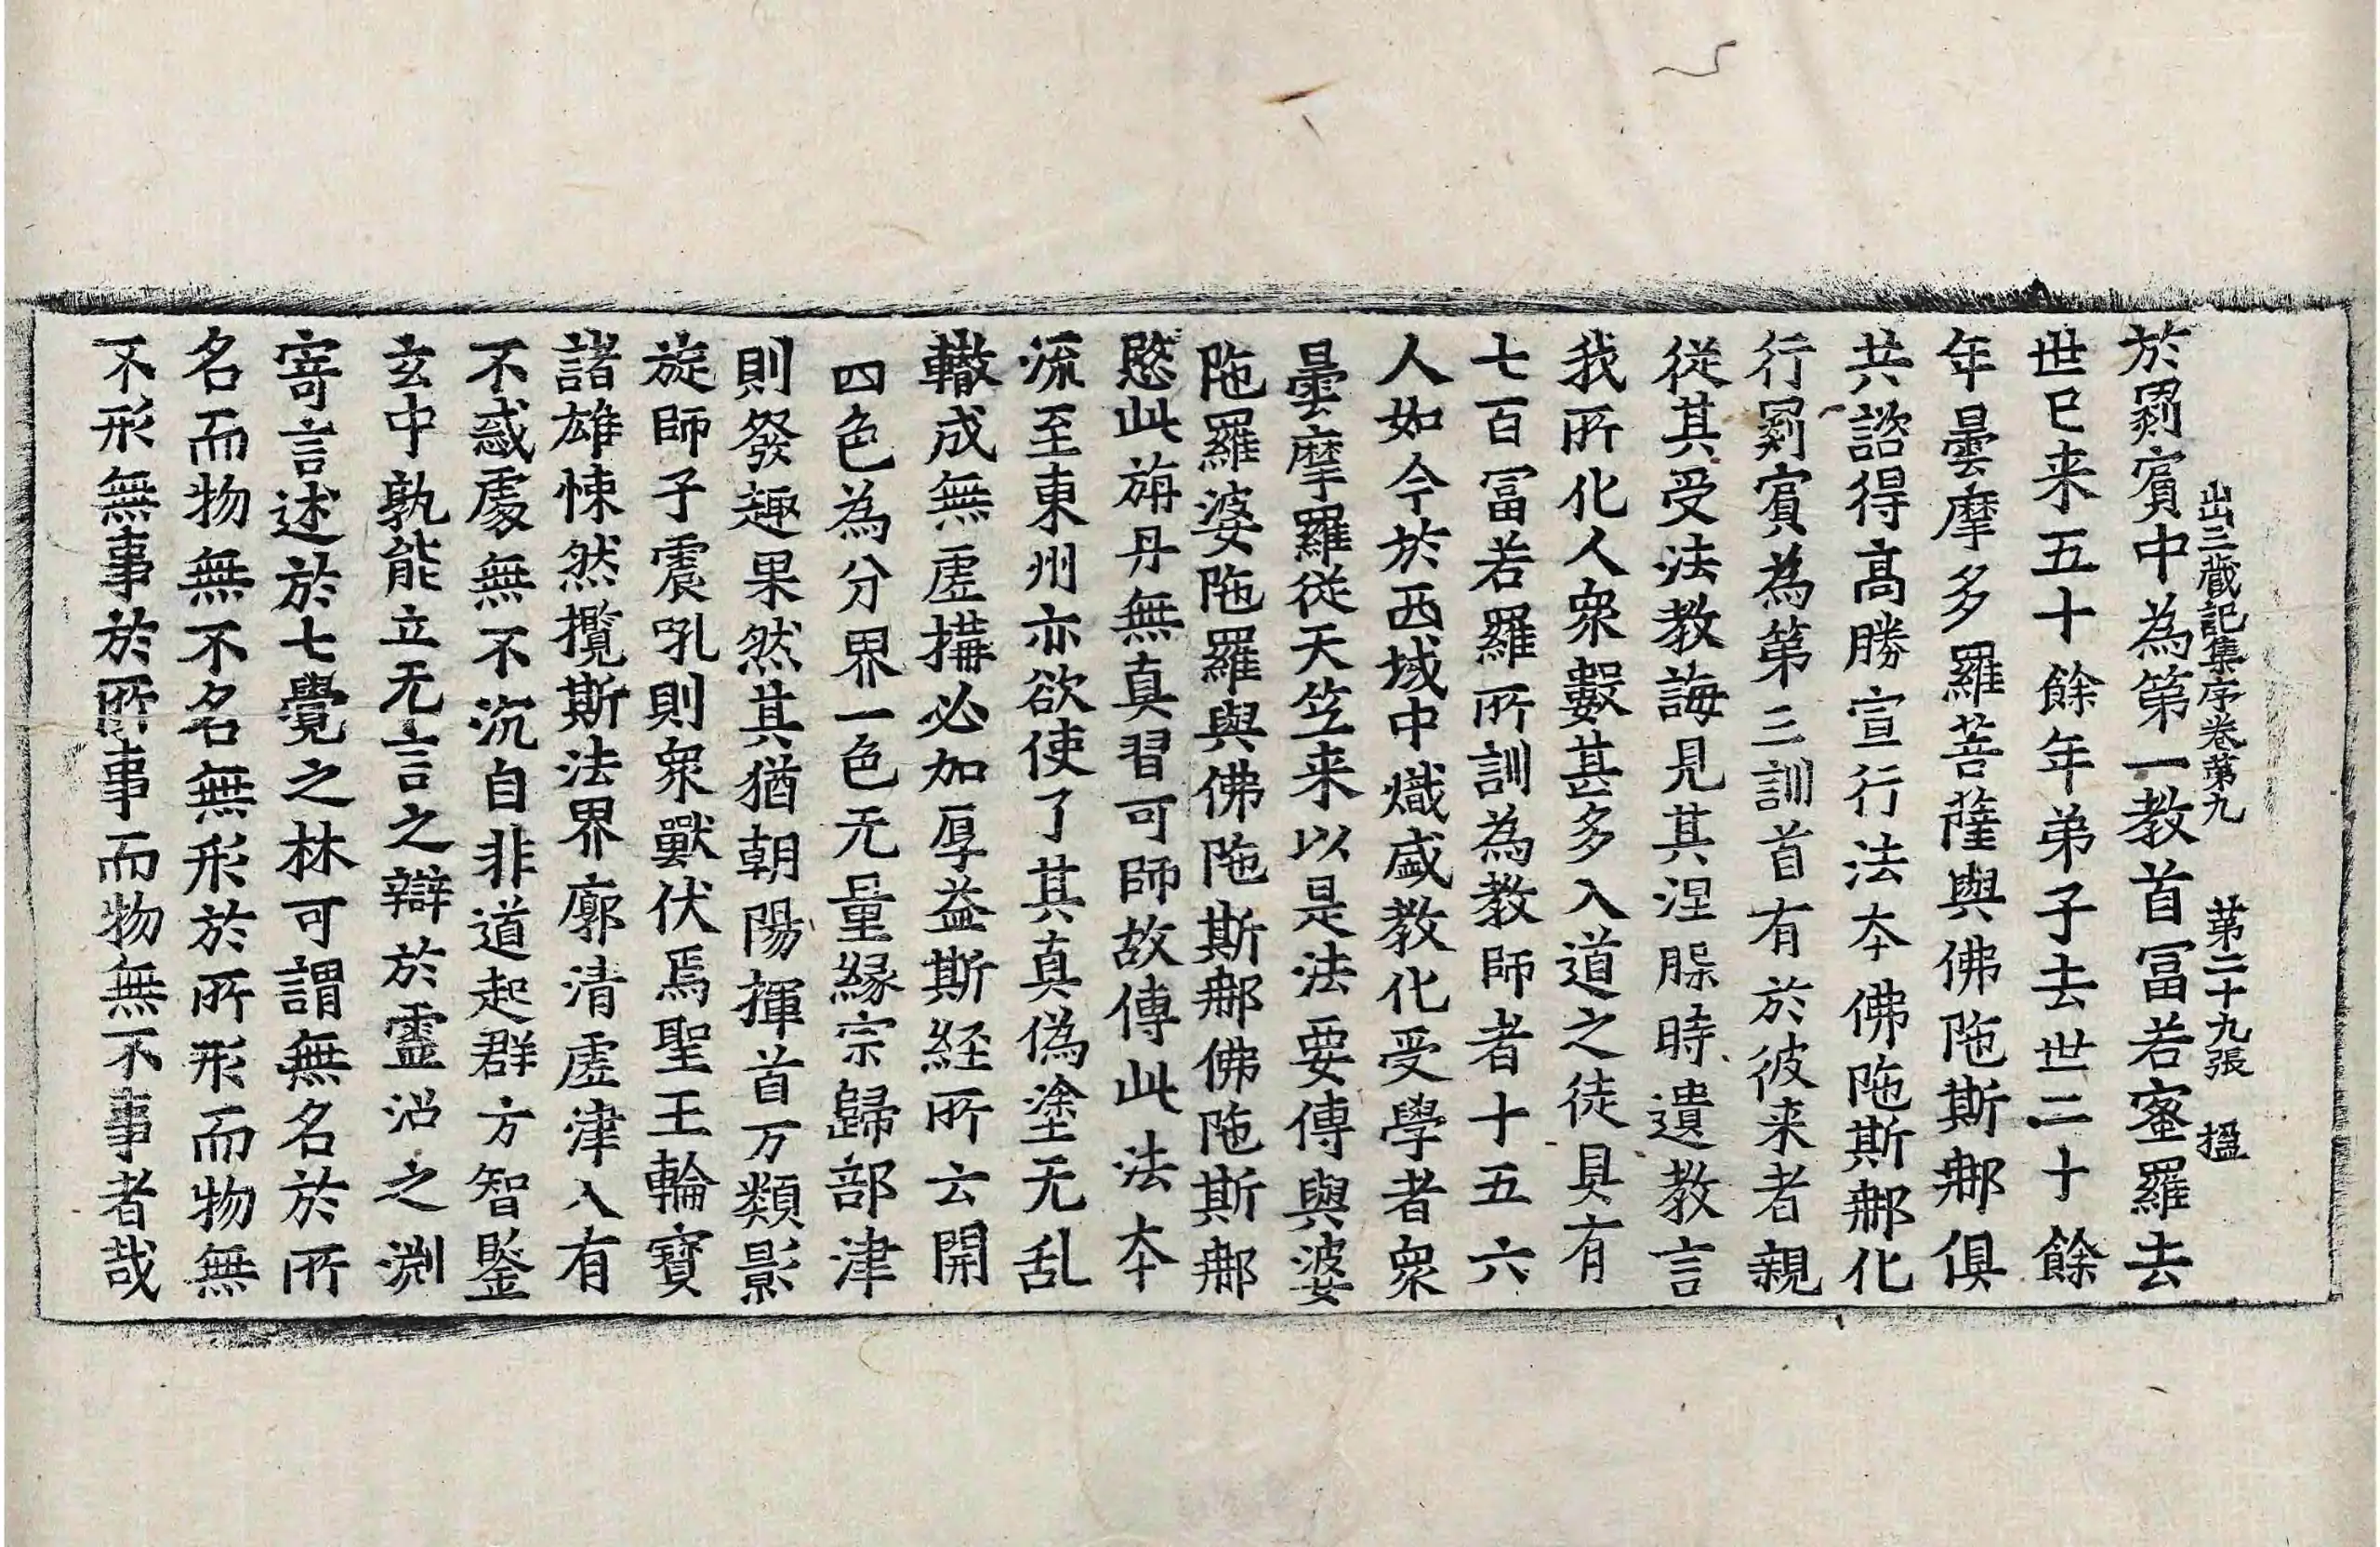 出三藏記集序卷第九 第二十九張 搵
於罽賔中為第一教首冨若蜜羅去
世已来五十餘年弟子去世二十餘
年曇摩多羅菩薩與佛陁斯那俱
共諮得高勝宣行法夲佛陁斯那化
行罽賔為第三訓首有於彼来者親
從其受法教誨見其涅槃時遺教言
我所化人衆數甚多入道之徒具有
七百冨若羅所訓為教師者十五六
人如今於西域中熾盛教化受學者衆
曇摩羅從天笁来以是法要傳與婆
陁羅婆陁羅與佛陁斯那佛陁斯那
愍此旃丹無真習可師故傳此法夲
流至東州亦欲使了其真偽塗无乱
轍成無虚搆必加厚益斯経所云開
四色為分界一色无量縁宗歸部津
則發趣果然其猶朝陽揮首万類影
旋師子震吼則衆獸伏焉聖王輪寶
諸雄悚然攬斯法界廓清虚津入有
不惑處無不沉自非道起群方智鍳
玄中孰能立无言之辯於靈沼之渊
寄言述於七覺之林可謂無名於所
名而物無不名無形於所形而物無
不形無事於所事而物無不事者哉